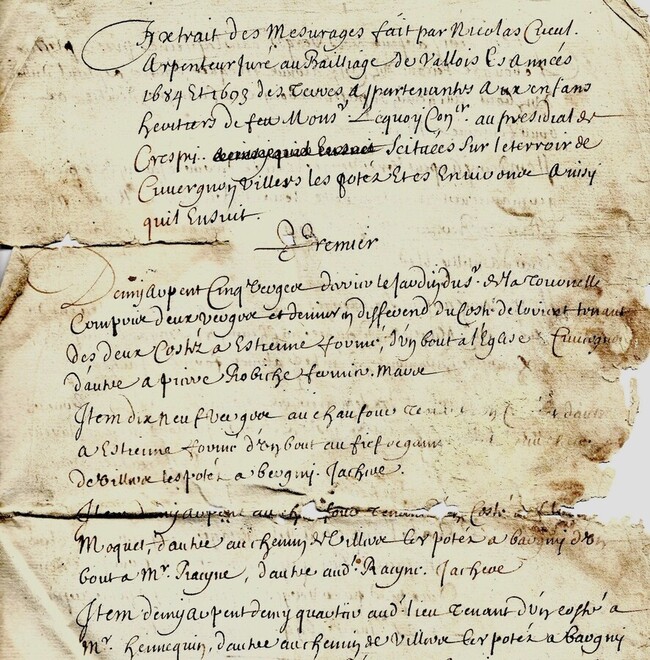 Extrait des Mesurages fait par Nicolas Cueul.
Arpenteur Juré au Bailliage de Vallois Es Années
1684 Et 1693 des Terres Appartenantes Aux enfans
heritiers de feu Mons.r Lequoy Con.er au presidial de
Crespi. Scituées Sur le terroir de
Cuvergnon Villers les potéz Et es Environs Ainsy
quil Ensuit.
Premier
Demy arpent Cinq Vergex derrier le Jardin du S.r de la Tournelle
Compris deux Vergex et demie en differend du Costé de tenant
des deux Costéz a Estienne d'un bout a l'Eglise
d'autre a pierre Robiche
Item dix neuf Vergex au chaufour
a Estienne d'un bout au fief
de Villers les potéz a bargni. Jachere.
Item demy arpent au Costé a
Moquet, d'autre au chemin de Villers les potéz a bargni d'un
bout a M.r Racyne, d'autre aud. Racyne. Jachere
Item demy arpent demy quartier aud. lieu Tenant d'un costé a
M.r hennequin, d'autre au chemin de Villers les potéz a bargni